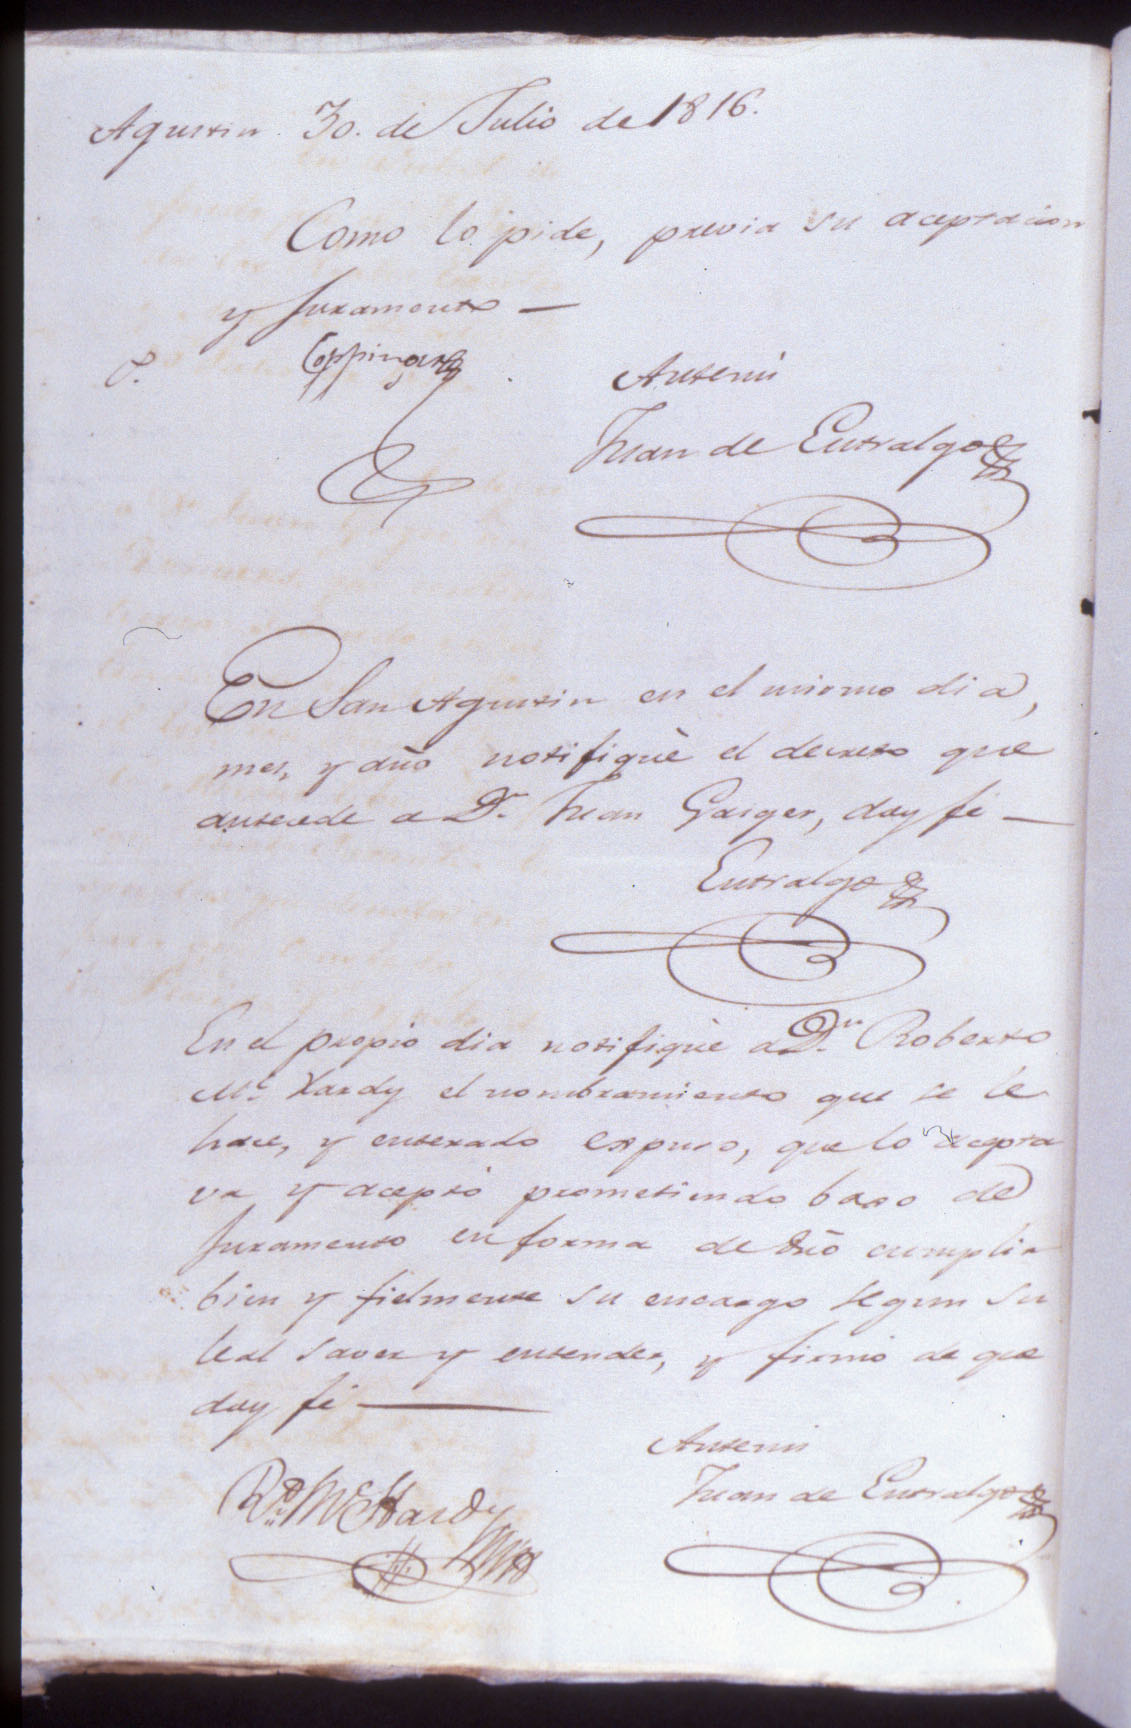 Agustin 30. de Julio de 1816.
Como lo pide, previa su aceptacion
y Juramento —
Coppinger
Antemi
Juan de Entralgo
En San Agustin en el mismo dia,
mes, y año notifiquè el decreto que
antecede a Dn. Juan Gaiger, doy fé —
Entralgo
En el propio dia notifiquè a Dn. Roberto
Mc. Hardy el nombramiento que se le
hace, y enterado expuso, que lo acepta
va y aceptó prometiendo baxo de
Juramento en forma de dro cumplir
bien y fielmente su encargo segun su
leal saver y entender, y firmó de que
doy fé —
Rt. McHardy
Antemi
Juan de Entralgo